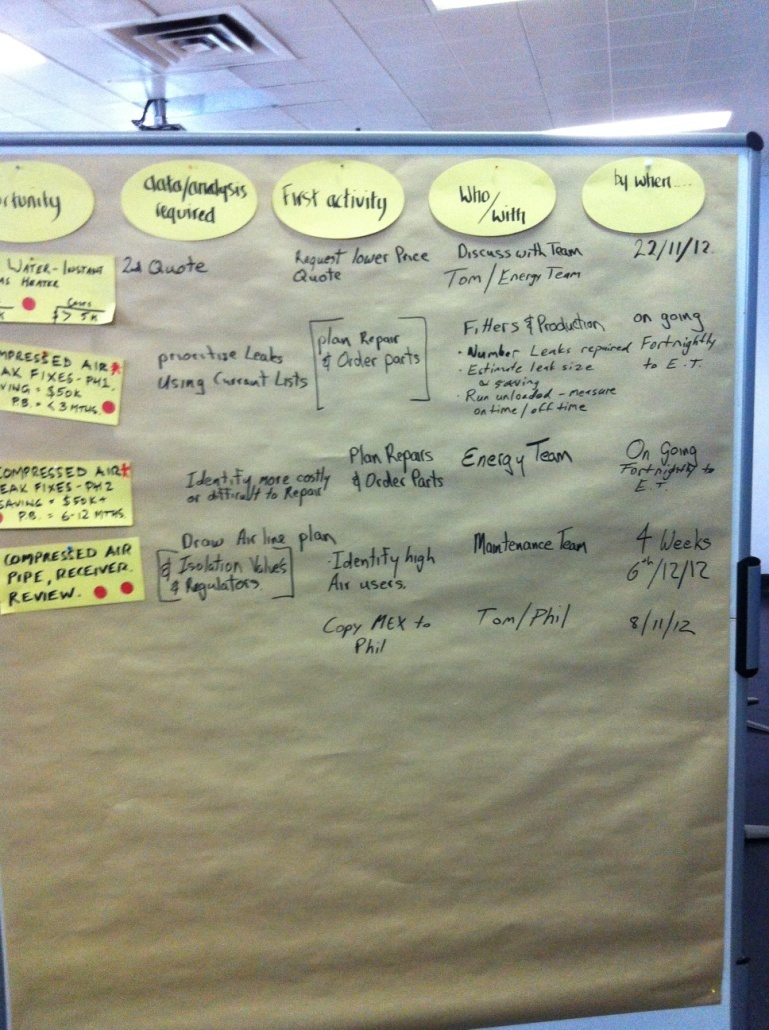 rtunity
data/analysis
required
First activity
Who
/with
by when....
WATER-INSTANT
AS HEATER
GASES
$ > 5K
2nd Quote
Request lower Price
Quote
Discuss with Team
Tom/Energy Team
22/11/12.
MPRESSED AIR
EAK FIXES-PH1.
VING = $50K
P.B. = < 3 MTHS.
prioritize Leaks
Using Current Lists
plan Repair
& Order parts
Fitters & Production
• Number Leaks repaired
• Estimate leak size
& saving
• Run unloaded - measure
on time/off time
on going
Fortnightly
to E.T.
COMPRESSED AIR
EAK FIXES-PH2
SAVING = $50K+
P.B. = 6-12 MTHS.
Identify more costly
or difficult to Repair
Plan Repairs
& Order Parts
Energy Team
On Going
Fortnightly to
E.T.
COMPRESSED AIR
PIPE, RECEIVER.
REVIEW.
Draw Air line plan
& Isolation Valves
& Regulators.
• Identify high
Air users.
Maintenance Team
4 Weeks
6th/12/12
Copy MEX to
Phil
Tom/Phil
8/11/12